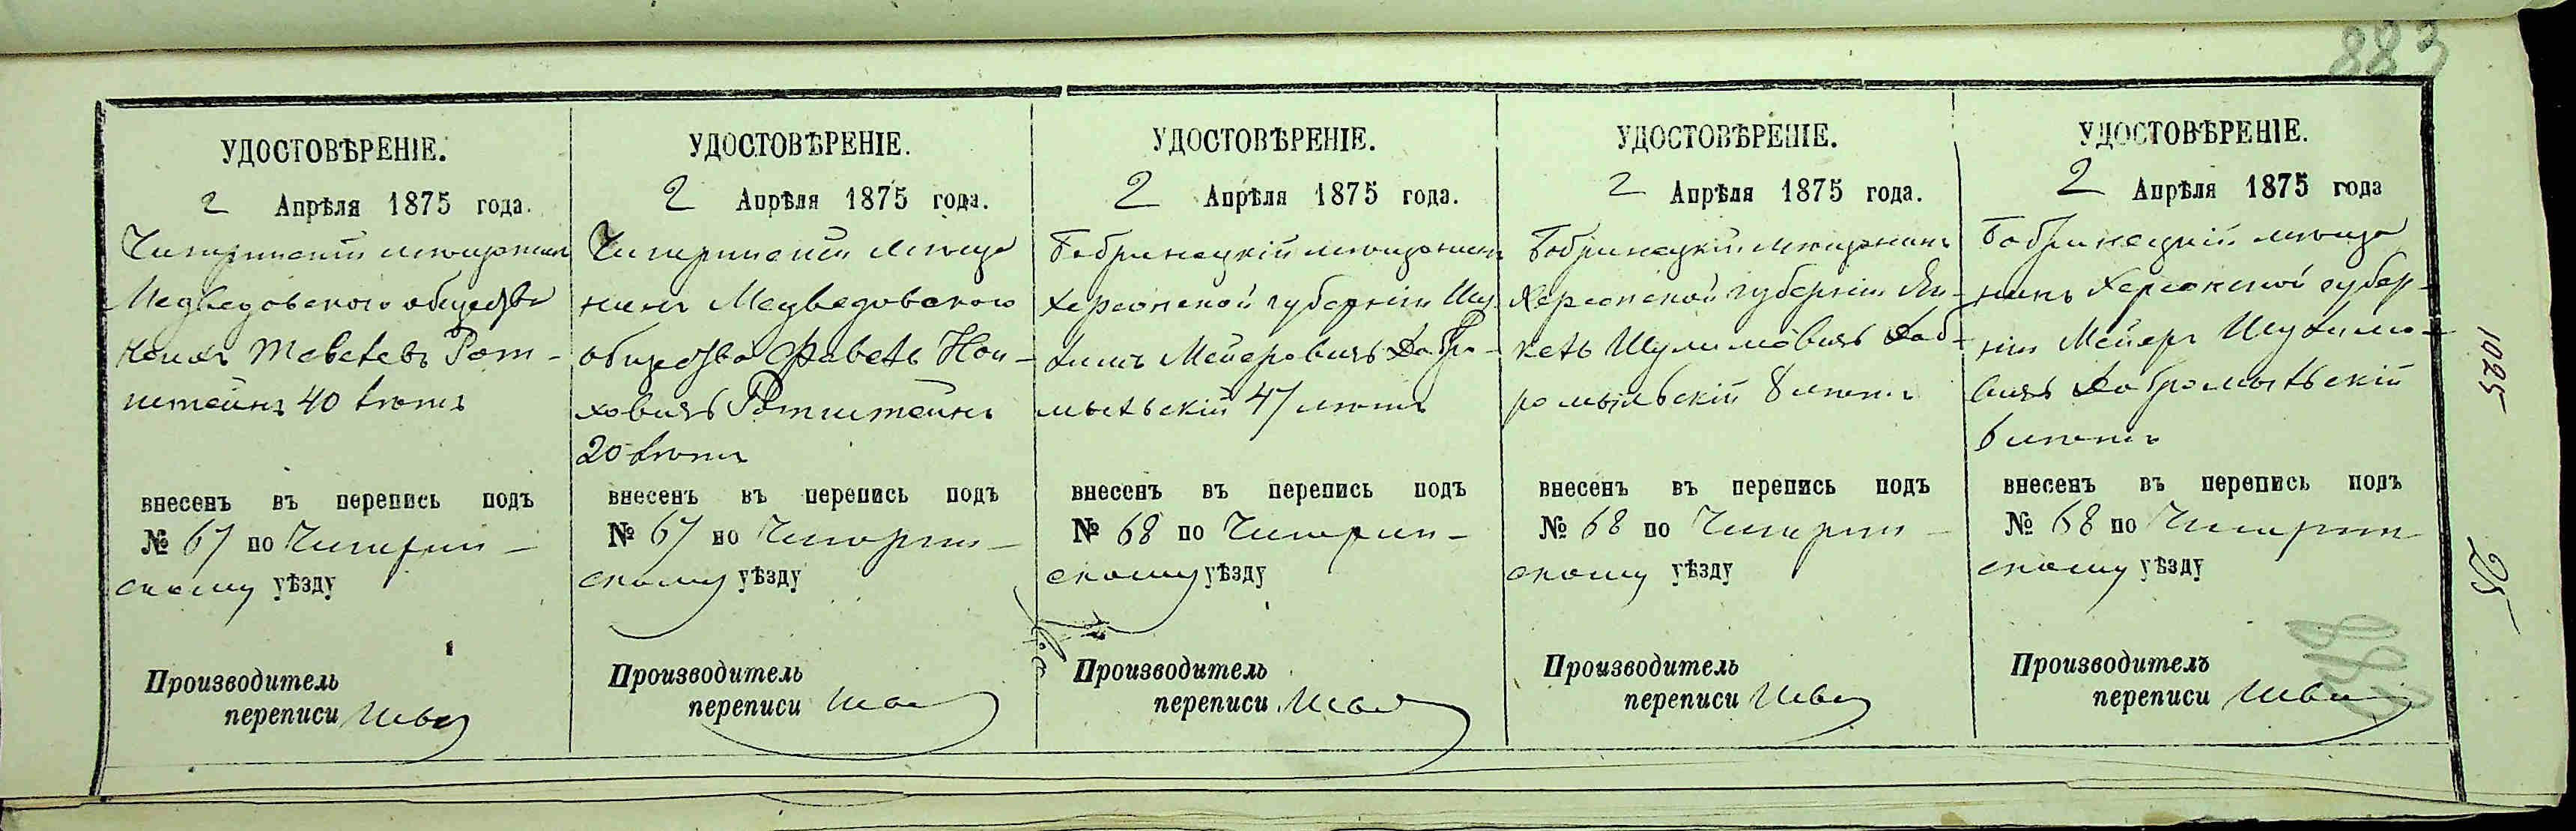 883
УДОСТОВѢРЕНІЕ.
2 Апрѣля 1875 года.
Чигиринскій мѣщанинъ
Медведовскаго общества
Рот-
штейнъ 40 лѣтъ
внесенъ въ перепись подъ
№ 67 по Чигирин-
скому уѣзду
Производитель
переписи
УДОСТОВѢРЕНІЕ.
2 Апрѣля 1875 года.
Чигиринскій мѣща
нинъ Медведовскаго
общества
ховичъ Ротштейнъ
20 лѣтъ
внесенъ въ перепись подъ
№ 67 по Чигирин-
скому уѣзду
Производитель
переписи
УДОСТОВѢРЕНІЕ.
2 Апрѣля 1875 года.
Бобринецкій мѣщанинъ
Херсонской губерніи Шу-
лимъ Мейеровичъ Добро-
мыльскій 47 лѣтъ
внесенъ въ перепись подъ
№ 68 по Чигирин-
скому уѣзду
Производитель
переписи
УДОСТОВѢРЕНІЕ.
2 Апрѣля 1875 года.
Бобринецкій мѣщанинъ
Херсонской губерніи Ян-
кель Шулимовичъ Доб-
ромыльскій 8 лѣтъ
внесенъ въ перепись подъ
№ 68 по Чигирин-
скому уѣзду
Производитель
переписи
УДОСТОВѢРЕНІЕ.
2 Апрѣля 1875 года
Бобринецкій мѣща
нинъ Херсонской губер-
ніи Мейеръ Шулимо-
вичъ Добромыльскій
6 лѣтъ
внесенъ въ перепись подъ
№ 68 по Чигирин
скому уѣзду
Производитель
переписи
1025